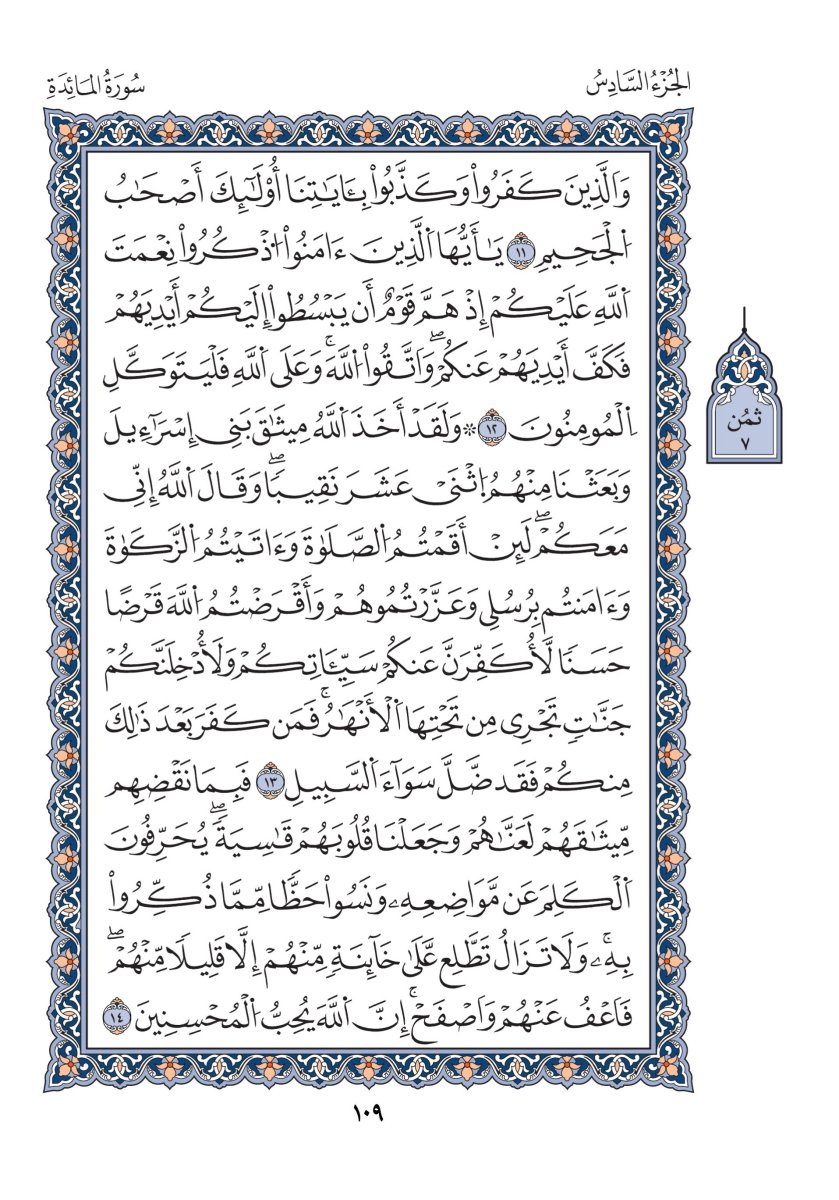 الجُزْءُ السَّادِسُ
سُورَةُ المَائِدَةِ
وَالَّذِينَ كَفَرُواْ وَكَذَّبُواْ بِـَٔايَٰتِنَا أُوْلَٰٓئِكَ أَصْحَٰبُ
اُ۬لْجَحِيمِ ١١ يَٰٓأَيُّهَا اَ۬لَّذِينَ ءَامَنُواْ اُ۟ذْكُرُواْ نِعْمَتَ
اَ۬للَّهِ عَلَيْكُمْ إِذْ هَمَّ قَوْمٌ أَن يَبْسُطُواْ إِلَيْكُمْ أَيْدِيَهُمْ
فَكَفَّ أَيْدِيَهُمْ عَنكُمْۖ وَاتَّقُواْ اُ۬للَّهَۚ وَعَلَى اَ۬للَّهِ فَلْيَتَوَكَّلِ
اِ۬لْمُومِنُونَ ١٢ ۞ وَلَقَدْ أَخَذَ اَ۬للَّهُ مِيثَٰقَ بَنِي إِسْرَآءِيلَ
وَبَعَثْنَا مِنْهُمُ اُ۪ثْنَيْ عَشَرَ نَقِيباٗۖ وَقَالَ اَ۬للَّهُ إِنِّي
مَعَكُمْۖ لَئِنْ أَقَمْتُمُ اُ۬لصَّلَوٰةَ وَءَاتَيْتُمُ اُ۬لزَّكَوٰةَ
وَءَامَنتُم بِرُسُلِي وَعَزَّرْتُمُوهُمْ وَأَقْرَضْتُمُ اُ۬للَّهَ قَرْضًا
حَسَنٗا لَّأُكَفِّرَنَّ عَنكُمْ سَيِّـَٔاتِكُمْ وَلَأُدْخِلَنَّكُمْ
جَنَّٰتٖ تَجْرِي مِن تَحْتِهَا اَ۬لْأَنْهَٰرُۚ فَمَن كَفَرَ بَعْدَ ذَٰلِكَ
مِنكُمْ فَقَد ضَّلَّ سَوَآءَ اَ۬لسَّبِيلِ ١٣ فَبِمَا نَقْضِهِم
مِّيثَٰقَهُمْ لَعَنَّٰهُمْ وَجَعَلْنَا قُلُوبَهُمْ قَٰسِيَةٗۖ يُحَرِّفُونَ
اَ۬لْكَلِمَ عَن مَّوَاضِعِهِۦ وَنَسُواْ حَظّٗا مِّمَّا ذُكِّرُواْ
بِهِۦۚ وَلَا تَزَالُ تَطَّلِعُ عَلَىٰ خَآئِنَةٖ مِّنْهُمْ إِلَّا قَلِيلٗا مِّنْهُمْۖ
فَاعْفُ عَنْهُمْ وَاصْفَحْۚ إِنَّ اَ۬للَّهَ يُحِبُّ اُ۬لْمُحْسِنِينَ ١٤
ثُمُن
٧
١٠٩